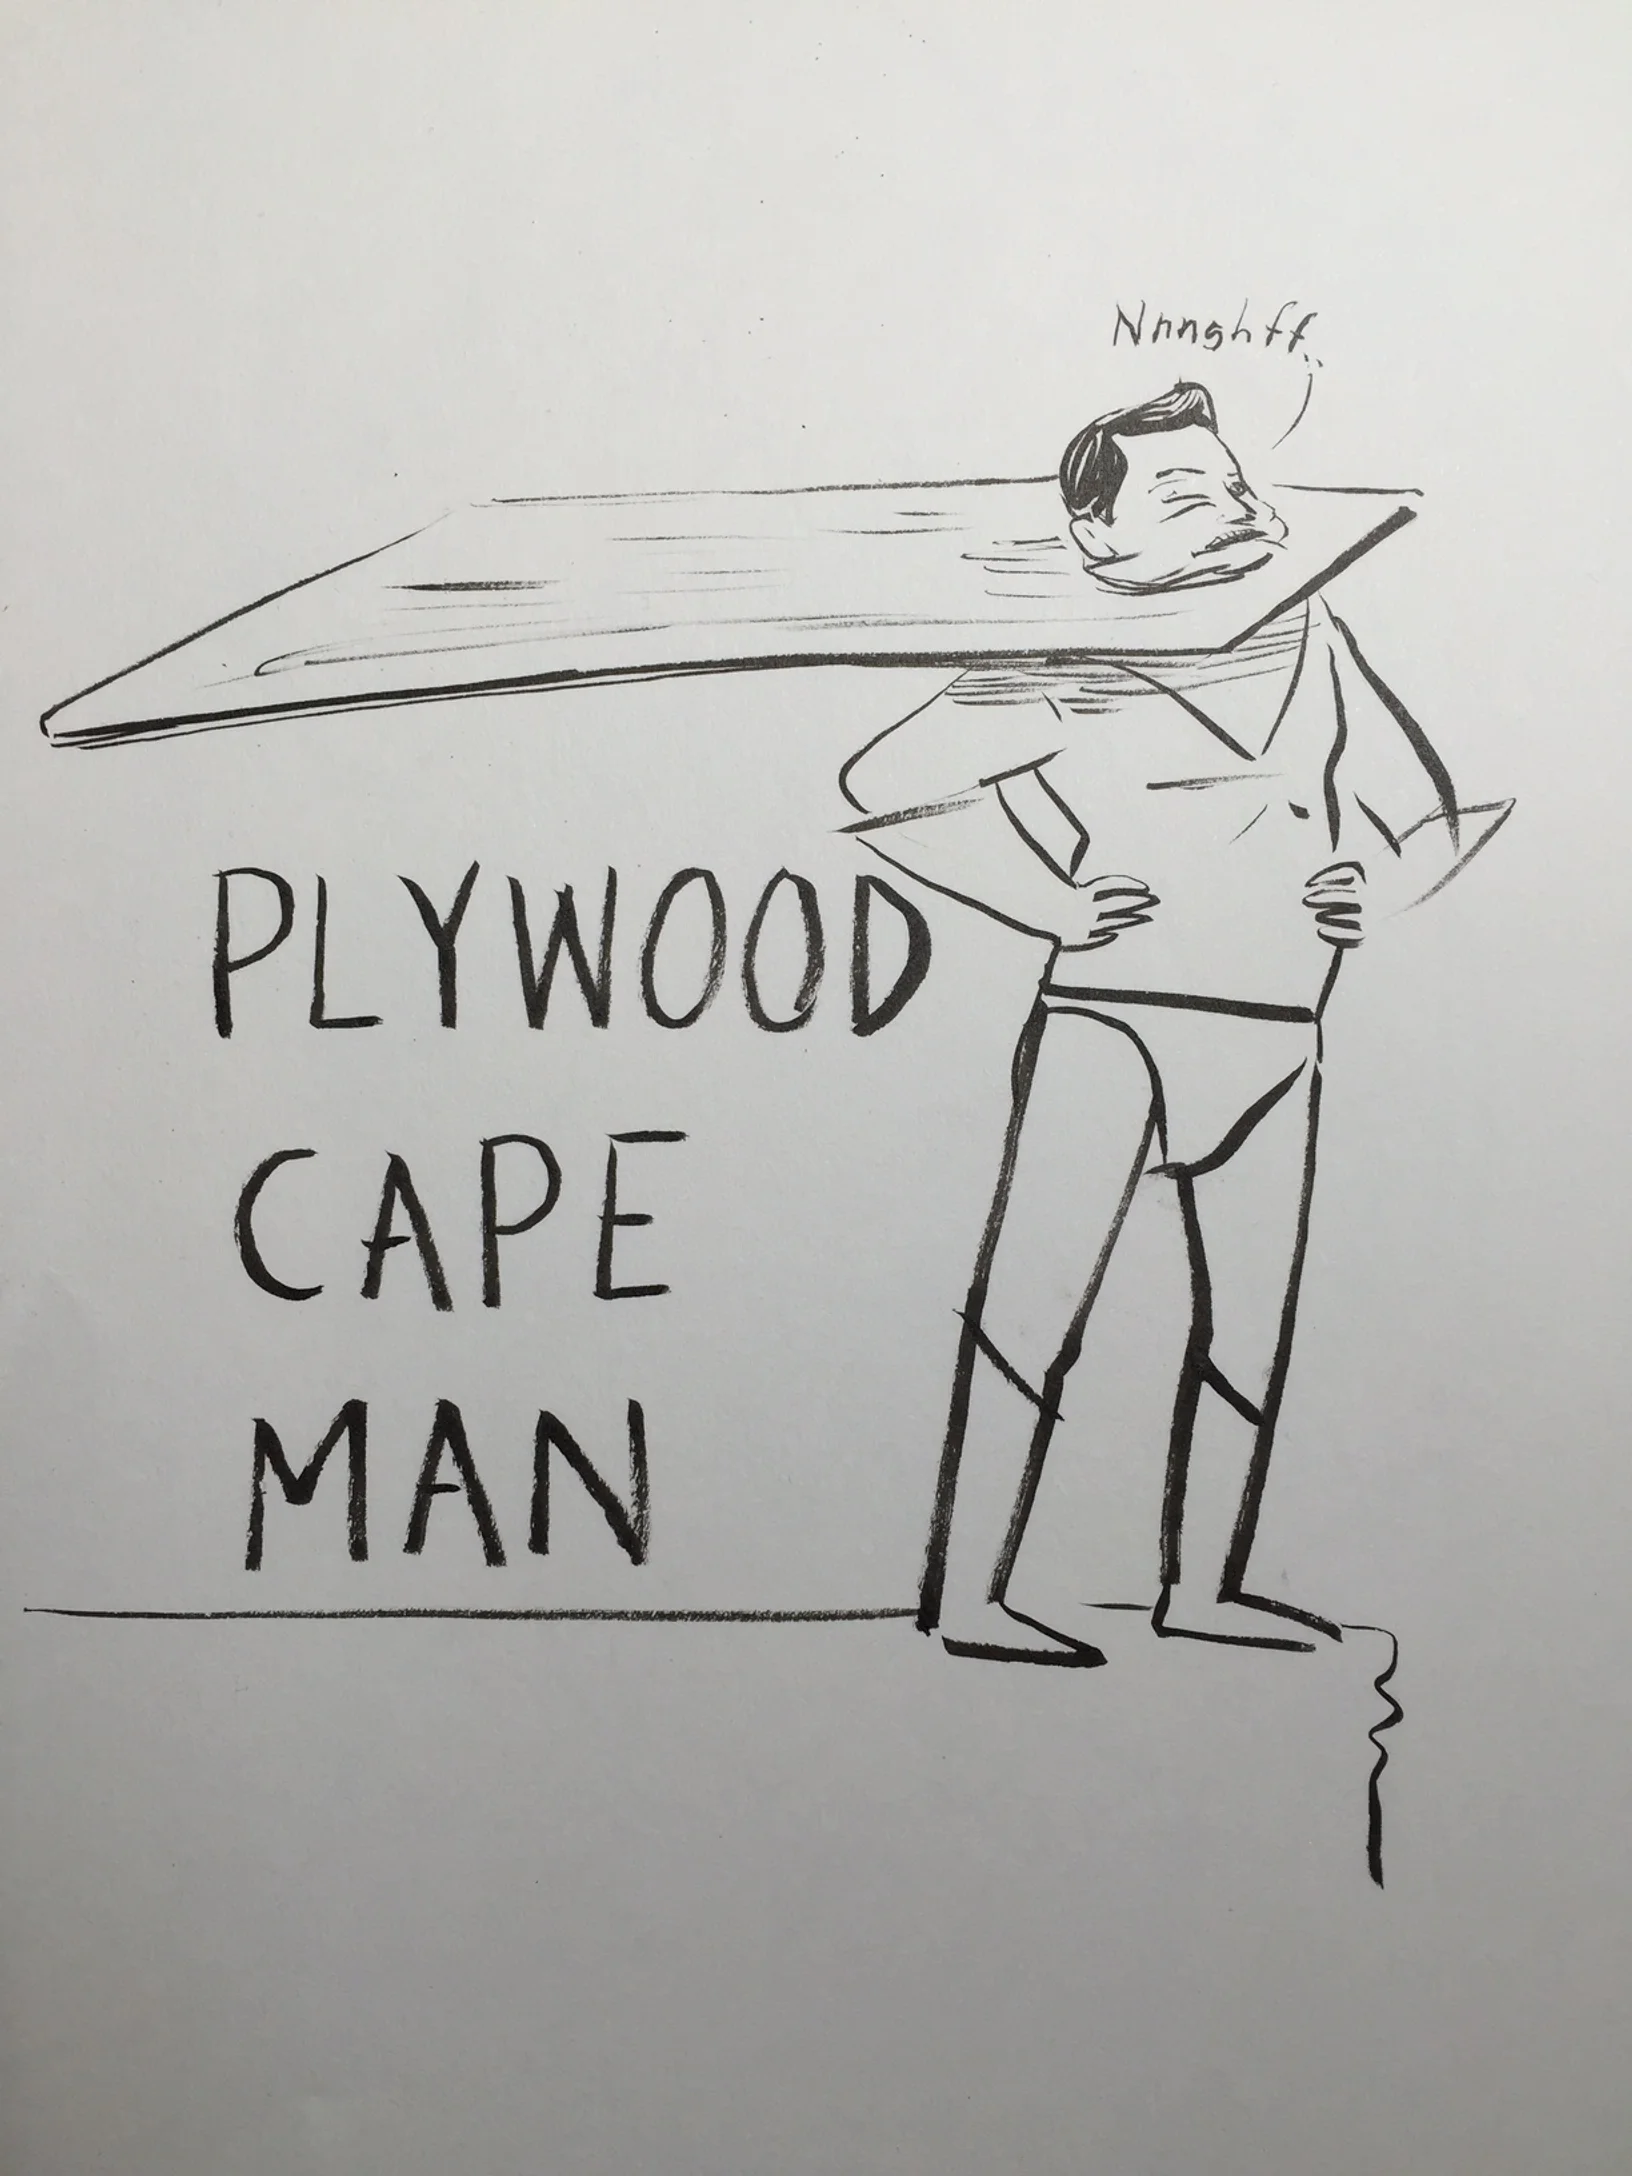 Nnnghff..
PLYWOOD
CAPE
MAN